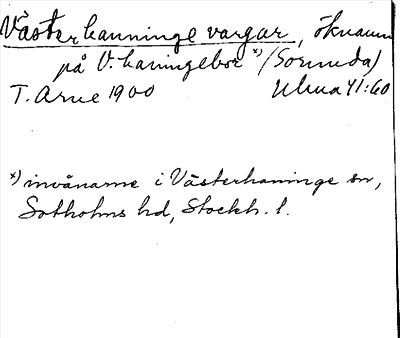 Västerhanninge vargar, öknamn
på V.haningebor *) (Sorunda)
T. Arne 1900 Ulma 41:60
*) invånarne i Västerhaninge sn,
Sotholms hd, Stockh. l.